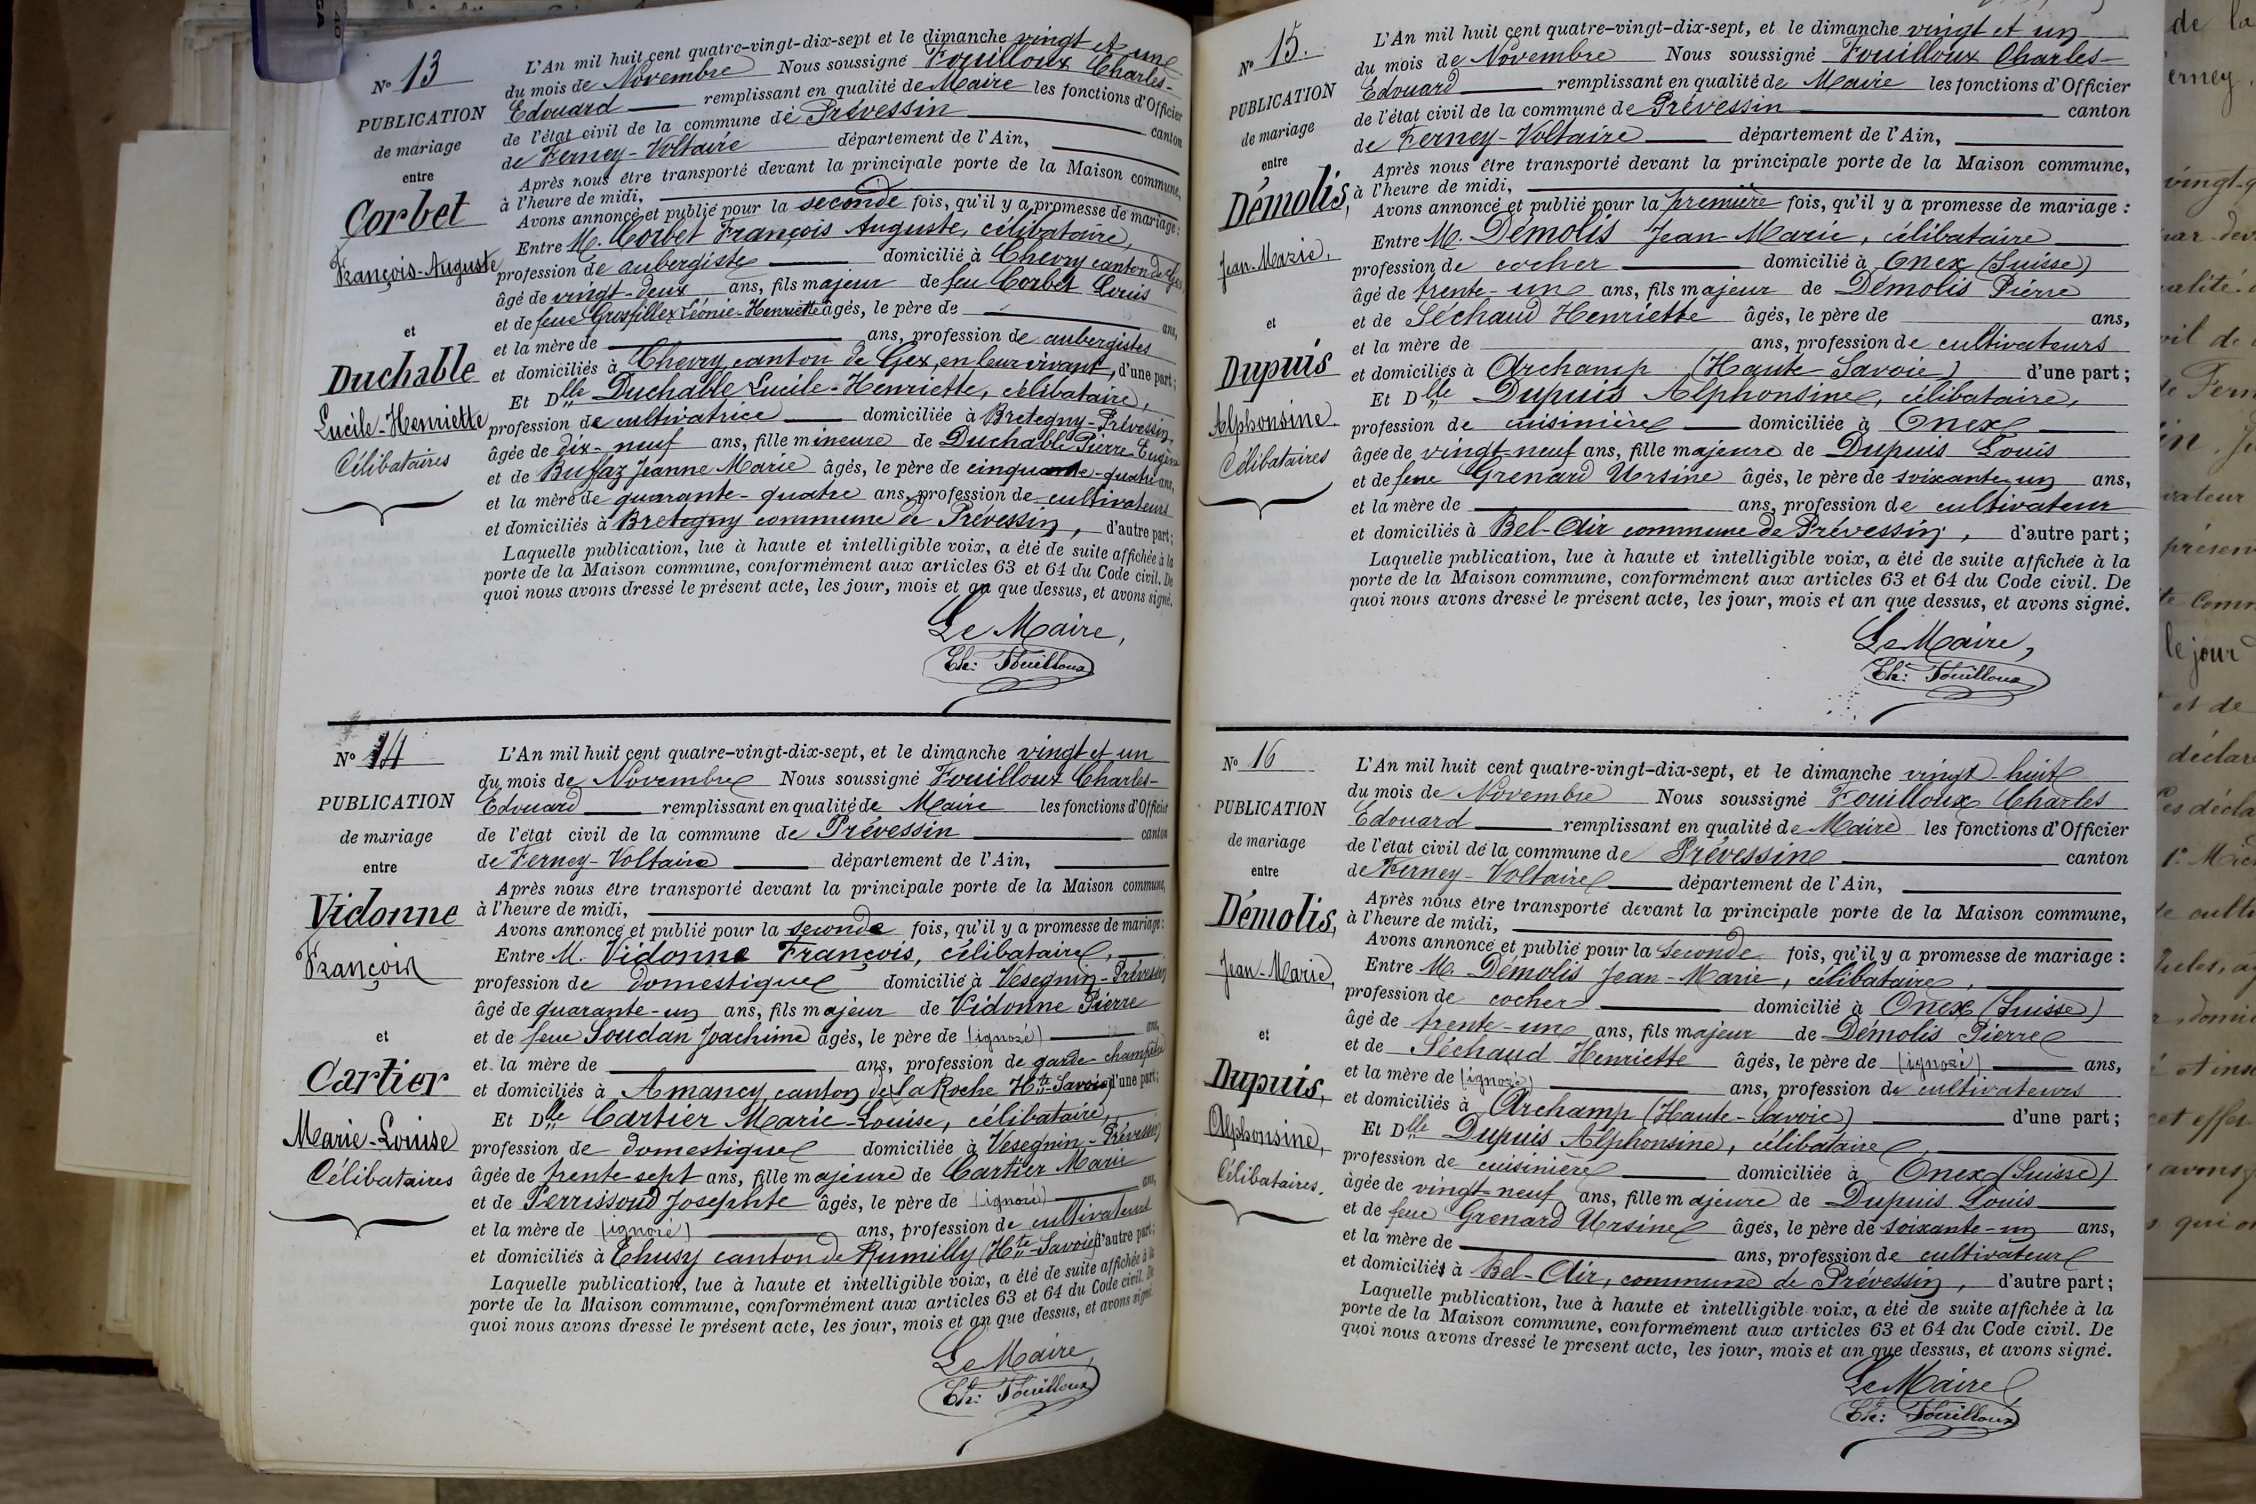 N° 13
PUBLICATION
de mariage
entre
Corbet
François-Auguste
et
Duchable
Lucile-Henriette
Célibataires
L'An mil huit cent quatre-vingt-dix-sept et le dimanche vingt et un
du mois de Novembre Nous soussigné Fouilloux Charles-
Edouard remplissant en qualité de Maire les fonctions d'Officier
de l'état civil de la commune de Prévessin canton
de Ferney-Voltaire département de l'Ain,
Après nous être transporté devant la principale porte de la Maison commune,
à l'heure de midi,
Avons annoncé et publié pour la seconde fois, qu'il y a promesse de mariage :
Entre M. Corbet François Auguste, célibataire,
profession de aubergiste domicilié à Chevry canton de Gex
âgé de vingt-deux ans, fils majeur de feu Corbet Louis
et de feue Grosfillex Léonie-Henriette âgés, le père de ans,
et la mère de ans, profession de aubergistes
et domiciliés à Chevry canton de Gex, en leur vivant, d'une part ;
Et Dlle Duchable Lucile-Henriette, célibataire,
profession de cultivatrice domiciliée à Bretegny-Prévessin,
âgée de dix-neuf ans, fille mineure de Duchable Pierre Eugène
et de Buffaz Jeanne Marie âgés, le père de cinquante-quatre ans,
et la mère de quarante-quatre ans, profession de cultivateurs
et domiciliés à Bretegny commune de Prévessin, d'autre part ;
Laquelle publication, lue à haute et intelligible voix, a été de suite affichée à la
porte de la Maison commune, conformément aux articles 63 et 64 du Code civil. De
quoi nous avons dressé le présent acte, les jour, mois et an que dessus, et avons signé.
Le Maire,
Ch: Fouilloux
N° 14
PUBLICATION
de mariage
entre
Vidonne
François
et
Cartier
Marie-Louise
Célibataires
L'An mil huit cent quatre-vingt-dix-sept, et le dimanche vingt et un
du mois de Novembre Nous soussigné Fouilloux Charles-
Edouard remplissant en qualité de Maire les fonctions d'Officier
de l'état civil de la commune de Prévessin canton
de Ferney-Voltaire département de l'Ain,
Après nous être transporté devant la principale porte de la Maison commune,
à l'heure de midi,
Avons annoncé et publié pour la seconde fois, qu'il y a promesse de mariage :
Entre M. Vidonne François, célibataire,
profession de domestique domicilié à Vesegnin-Prévessin
âgé de quarante-un ans, fils majeur de Vidonne Pierre
et de feue Soudan Joachime âgés, le père de (ignoré) ans,
et la mère de ans, profession de garde-champêtre
et domiciliés à Amancy canton de La Roche Hte-Savoie) d'une part ;
Et Dlle Cartier Marie-Louise, célibataire,
profession de domestique domiciliée à Vesegnin-Prévessin
âgée de trente-sept ans, fille majeure de Cartier Marie
et de Perrissoud Josephte âgés, le père de (ignoré) ans,
et la mère de (ignoré) ans, profession de cultivateurs
et domiciliés à Thusy canton de Rumilly (Hte-Savoie) d'autre part ;
Laquelle publication, lue à haute et intelligible voix, a été de suite affichée à la
porte de la Maison commune, conformément aux articles 63 et 64 du Code civil. De
quoi nous avons dressé le présent acte, les jour, mois et an que dessus, et avons signé.
Le Maire,
Ch: Fouilloux
N° 15.
PUBLICATION
de mariage
entre
Démolis,
Jean-Marie,
et
Dupuis
Alphonsine.
Célibataires
L'An mil huit cent quatre-vingt-dix-sept, et le dimanche vingt et un
du mois de Novembre Nous soussigné Fouilloux Charles-
Edouard remplissant en qualité de Maire les fonctions d'Officier
de l'état civil de la commune de Prévessin canton
de Ferney-Voltaire département de l'Ain,
Après nous être transporté devant la principale porte de la Maison commune,
à l'heure de midi,
Avons annoncé et publié pour la première fois, qu'il y a promesse de mariage :
Entre M. Démolis Jean-Marie, célibataire
profession de cocher domicilié à Onex (Suisse)
âgé de trente-un ans, fils majeur de Démolis Pierre
et de Séchaud Henriette âgés, le père de ans,
et la mère de ans, profession de cultivateurs
et domiciliés à Archamp (Haute-Savoie) d'une part ;
Et Dlle Dupuis Alphonsine, célibataire,
profession de cuisinière domiciliée à Onex
âgée de vingt-neuf ans, fille majeure de Dupuis Louis
et de feue Grenard Ursine âgés, le père de soixante-un ans,
et la mère de ans, profession de cultivateur
et domiciliés à Bel-Air commune de Prévessin, d'autre part ;
Laquelle publication, lue à haute et intelligible voix, a été de suite affichée à la
porte de la Maison commune, conformément aux articles 63 et 64 du Code civil. De
quoi nous avons dressé le présent acte, les jour, mois et an que dessus, et avons signé.
Le Maire,
Ch: Fouilloux
N° 16
PUBLICATION
de mariage
entre
Démolis,
Jean-Marie,
et
Dupuis,
Alphonsine,
Célibataires.
L'An mil huit cent quatre-vingt-dix-sept, et le dimanche vingt-huit
du mois de Novembre Nous soussigné Fouilloux Charles
Edouard remplissant en qualité de Maire les fonctions d'Officier
de l'état civil de la commune de Prévessin canton
de Ferney-Voltaire département de l'Ain,
Après nous être transporté devant la principale porte de la Maison commune,
à l'heure de midi,
Avons annoncé et publié pour la seconde fois, qu'il y a promesse de mariage :
Entre M. Démolis Jean-Marie, célibataire,
profession de cocher domicilié à Onex (Suisse)
âgé de trente-un ans, fils majeur de Démolis Pierre
et de Séchaud Henriette âgés, le père de (ignoré) ans,
et la mère de (ignoré) ans, profession de cultivateurs
et domiciliés à Archamp (Haute-Savoie) d'une part ;
Et Dlle Dupuis Alphonsine, célibataire
profession de cuisinière domiciliée à Onex (Suisse)
âgée de vingt-neuf ans, fille majeure de Dupuis Louis
et de feue Grenard Ursine âgés, le père de soixante-un ans,
et la mère de ans, profession de cultivateur
et domiciliés à Bel-Air, commune de Prévessin, d'autre part ;
Laquelle publication, lue à haute et intelligible voix, a été de suite affichée à la
porte de la Maison commune, conformément aux articles 63 et 64 du Code civil. De
quoi nous avons dressé le present acte, les jour, mois et an que dessus, et avons signé.
Le Maire
Ch: Fouilloux
de la
le jour
et de